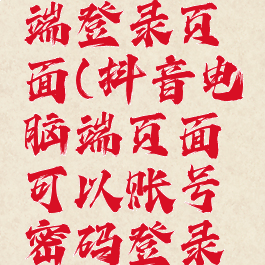 端登录页
面(抖音电
脑端页面
可以账号
密码登录